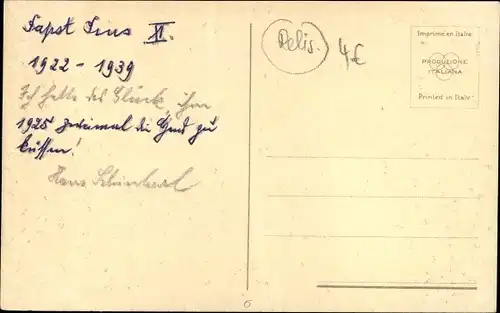 Papst Pius XI.
1922 - 1939
Ich hatte das Glück, ihm
1925 zweimal die Hand zu
küssen!
Hans
Relig.
4€
Imprimé en Italie
PRODUZIONE
ITALIANA
Printed in Italy
6